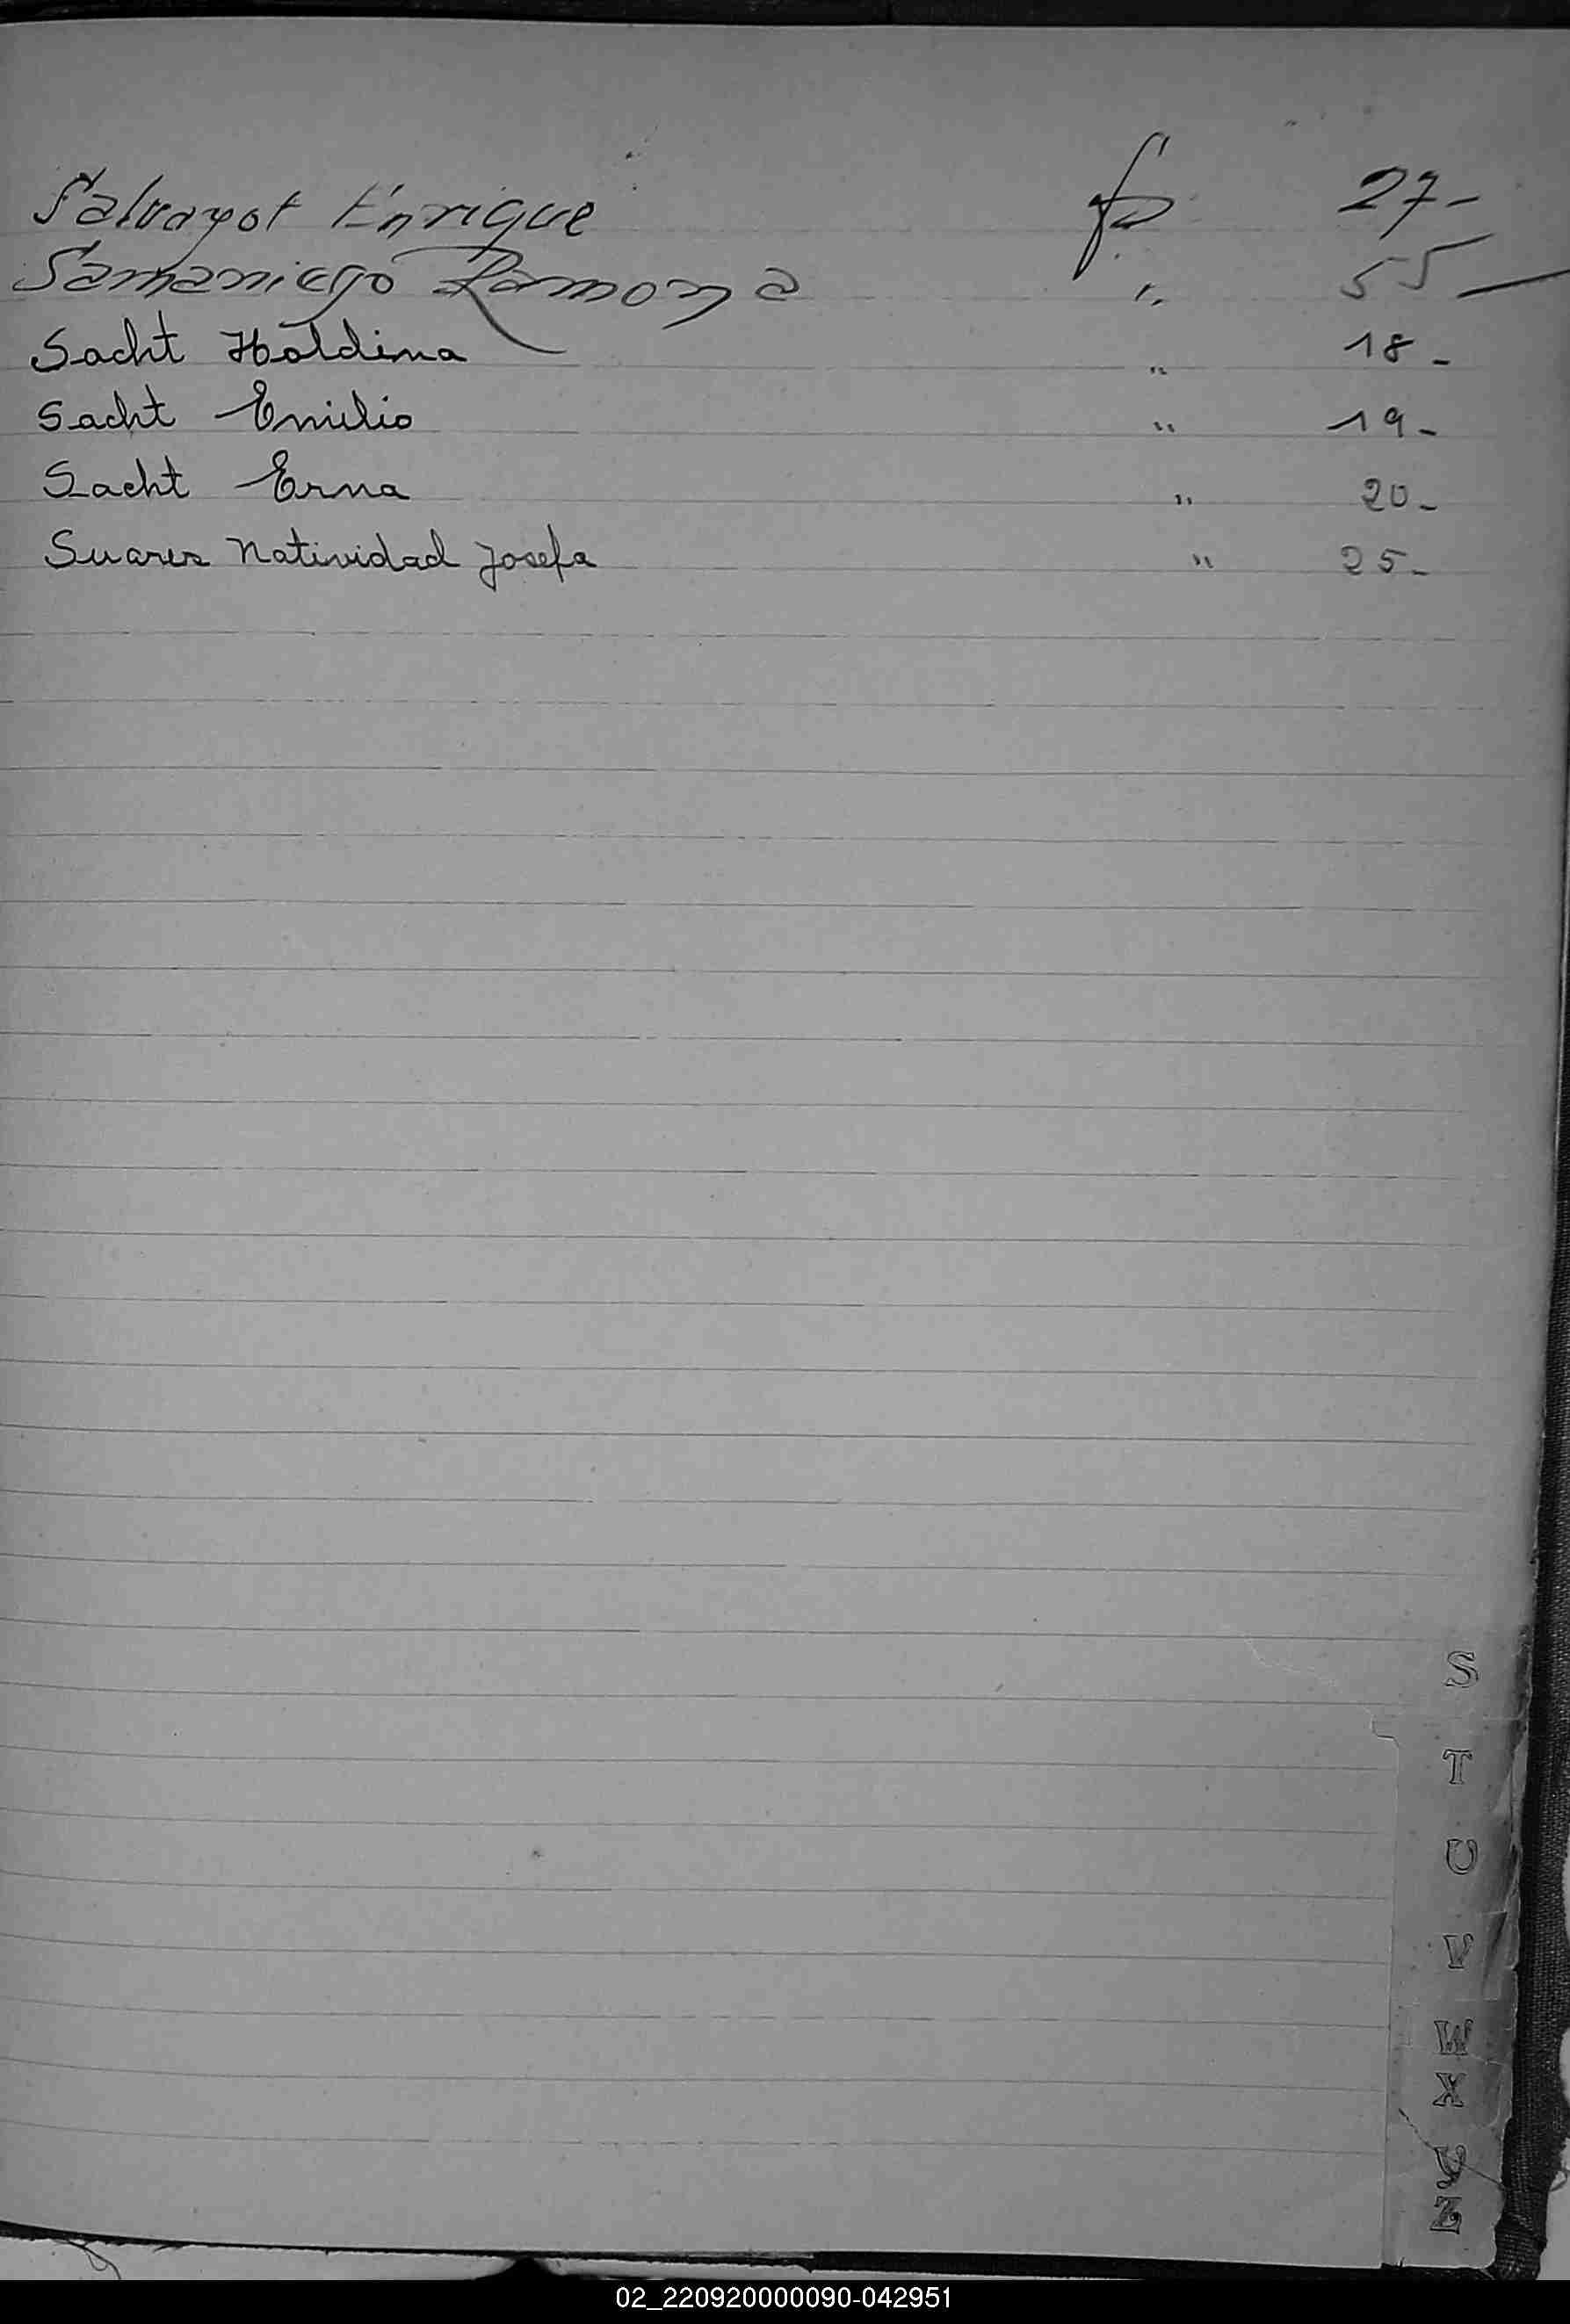 Salvayot Enrique fo 27-
Samaniego Ramona " 55-
Sacht Holdina " 18-
Sacht Emilio " 19-
Sacht Erna " 20-
Suares Natividad Josefa " 25-
S
T
U
V
W
X
Z
02_220920000090-042951